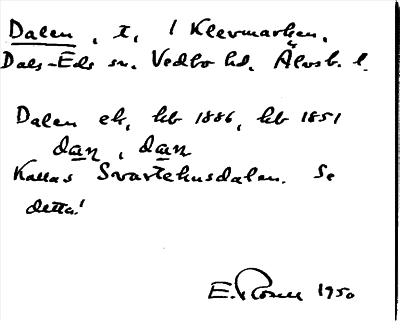 Dalen, t, I Klevmarken,
Dals-Eds sn. Vedbo hd. Älvsb. l.
Dalen ek, hb 1886, hb 1851
dan, dan
Kallas Svartehusdalen. Se
detta!
E. Rosell 1950